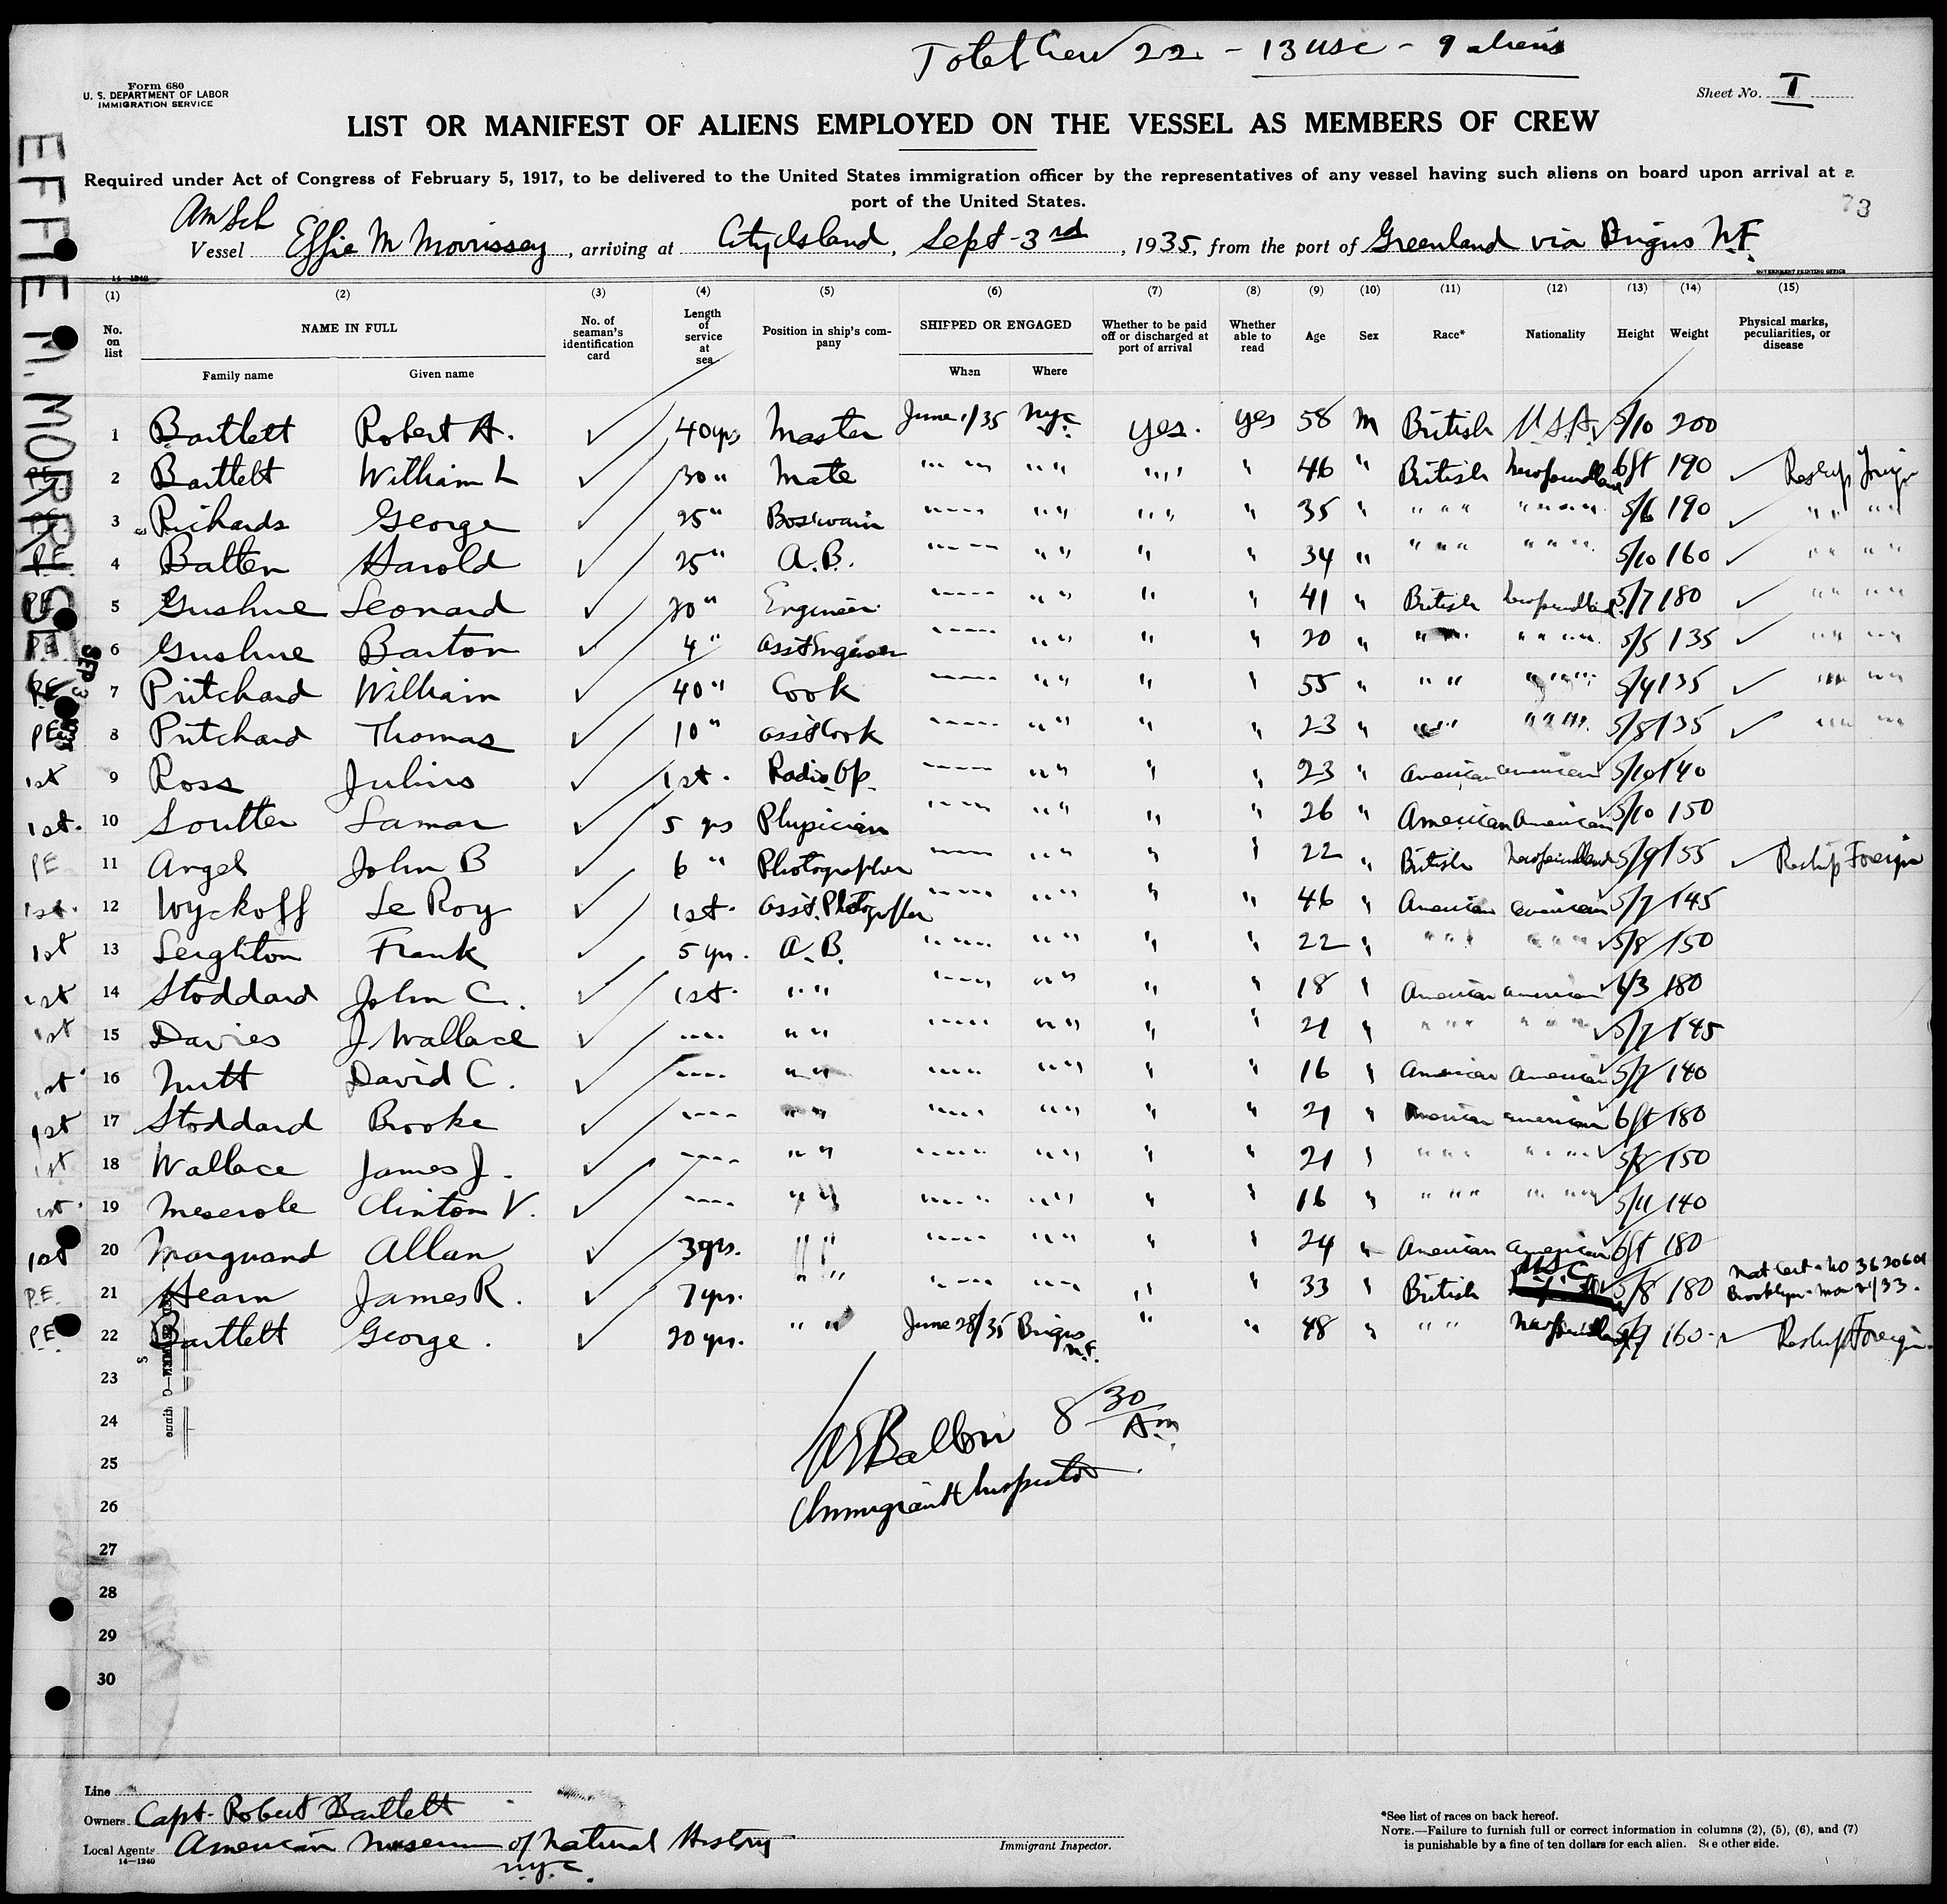 Total Crew 22 - 13 USC - 9 aliens
Form 680
U. S. DEPARTMENT OF LABOR
IMMIGRATION SERVICE
Sheet No. I
LIST OR MANIFEST OF ALIENS EMPLOYED ON THE VESSEL AS MEMBERS OF CREW
Required under Act of Congress of February 5, 1917, to be delivered to the United States immigration officer by the representatives of any vessel having such aliens on board upon arrival at a
port of the United States.
73
Am Sch
Vessel Effie M Morrissey, arriving at City Island, Sept - 3rd, 1935, from the port of Greenland via Brigus N.F.
EFFIE M. MORRISSEY
14-1240
GOVERNMENT PRINTING OFFICE
(1) (2) (3) (4) (5) (6) (7) (8) (9) (10) (11) (12) (13) (14) (15)
No. on list NAME IN FULL No. of seaman's identification card Length of service at sea Position in ship's company SHIPPED OR ENGAGED Whether to be paid off or discharged at port of arrival Whether able to read Age Sex Race* Nationality Height Weight Physical marks, peculiarities, or disease
Family name Given name When Where
1 Bartlett Robert A. ✓ 40 yrs Master June 1/35 NYC yes. yes 58 M British U.S.A. ✓ 5/10 200
2 Bartlett William L ✓ 30 " Mate " " " " " " " 46 " British Newfoundland 6ft 190 ✓ Reship Foreign
3 Richards George ✓ 25 " Boswain " " " " " " " 35 " " " " " 5/6 190 ✓ " " " "
PE 4 Batten Harold ✓ 25 " A.B. " " " " " " 34 " " " " " 5/10 160 ✓ " " " "
PE 5 Gushue Leonard ✓ 20 " Engineer " " " " " " 41 " British Newfoundland 5/7 180 ✓ " " " "
PE 6 Gushue Barton ✓ 4 " Asst Engineer " " " " " " 20 " " " " " 5/5 135 ✓ " " " "
PE 7 Pritchard William ✓ 40 " Cook " " " " " " 55 " " " " " 5/4 135 ✓ " " " "
PE 8 Pritchard Thomas ✓ 10 " Asst Cook " " " " " " 23 " " " " " 5/8 135 ✓ " " " "
1st 9 Ross Julius ✓ 1st. Radio Op. " " " " " " 23 " American American ✓ 5/10 140
1st. 10 Soutter Lamar ✓ 5 yrs Physician " " " " " " 26 " American American ✓ 5/10 150
PE 11 Angel John B ✓ 6 " Photographer " " " " " " 22 " British Newfoundland 5/9 155 ✓ Reship Foreign
1st. 12 Wyckoff Le Roy ✓ 1st. Asst. Photographer " " " " " " 46 " American American ✓ 5/7 145
1st 13 Leighton Frank ✓ 5 yrs. A.B. " " " " " " 22 " " " " " ✓ 5/8 150
1st 14 Stoddard John C. ✓ 1st. " " " " " " " " 18 " American American ✓ 6/3 180
1st 15 Davies J Wallace ✓ " " " " " " " " " " 21 " " " " " ✓ 5/7 145
1st 16 Nutt David C. ✓ " " " " " " " " " " 16 " American American ✓ 5/7 140
1st 17 Stoddard Brooke ✓ " " " " " " " " " " 21 " American American ✓ 6ft 180
1st 18 Wallace James J. ✓ " " " " " " " " " " 21 " " " " " ✓ 5/8 150
1st. 19 Meserole Clinton V. ✓ " " " " " " " " " " 16 " " " " " ✓ 5/11 140
1st 20 Marquand Allan ✓ 3 yrs. " " " " " " " " 24 " American American ✓ 6ft 180
P.E. 21 Hearn James R. ✓ 7 yrs. " " " " " " " " 33 " British USC 5/8 180 Nat Cert. No 3620601 Brooklyn - Mar 21/33.
PE 22 Bartlett George. ✓ 20 yrs. " " June 28/35 Brigus N.F. " " 48 " " " Newfoundland 5/9 160 ✓ Reship Foreign.
23
24
25
26
27
28
29
30
SEP 3 1935
8 30 Am.
Immigrant Inspector
Line
Owners Capt. Robert Bartlett
Local Agents American Museum of Natural History
N.Y.C.
14-1240
Immigrant Inspector.
*See list of races on back hereof.
NOTE.—Failure to furnish full or correct information in columns (2), (5), (6), and (7)
is punishable by a fine of ten dollars for each alien. See other side.